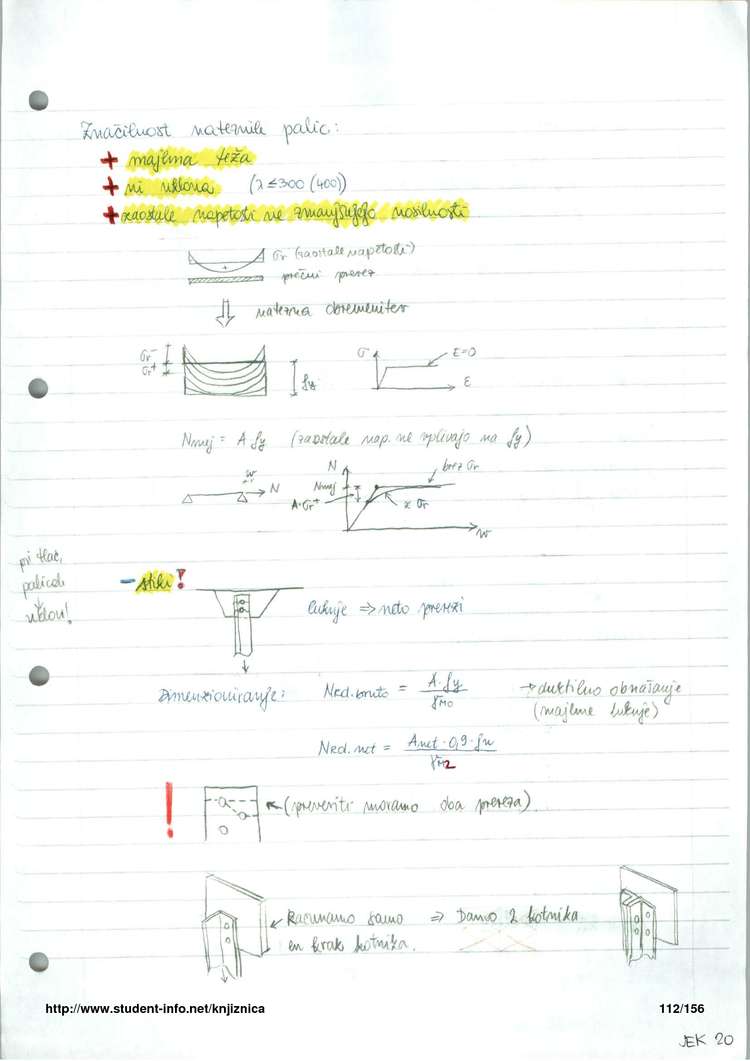 Značilnost nateznih palic:
+ majhna teža
+ ni uklona (λ ≤ 300 (400))
+ zaostale napetosti ne zmanjšujejo nosilnosti
σr (zaostale napetosti)
+
prečni prerez
natezna obremenitev
σr⁻
σr⁺
fy
σ
E=0
ε
Nmej = A fy (zaostale nap. ne vplivajo na fy)
w
N
N
Nmej
A·σr⁺
brez σr
z σr
w
pri tlač.
palicah
uklon!
- stiki!
luknje ⇒ neto prerezi
Dimenzioniranje: NRd.bruto = A·fy / γM0 → duktilno obnašanje
(majhne luknje)
NRd.net = Anet·0,9·fu / γM2
! ← (preveriti moramo oba prereza)
Računamo samo ⇒ Damo 2 kotnika.
en krak kotnika.
http://www.student-info.net/knjiznica 112/156
JEK 20